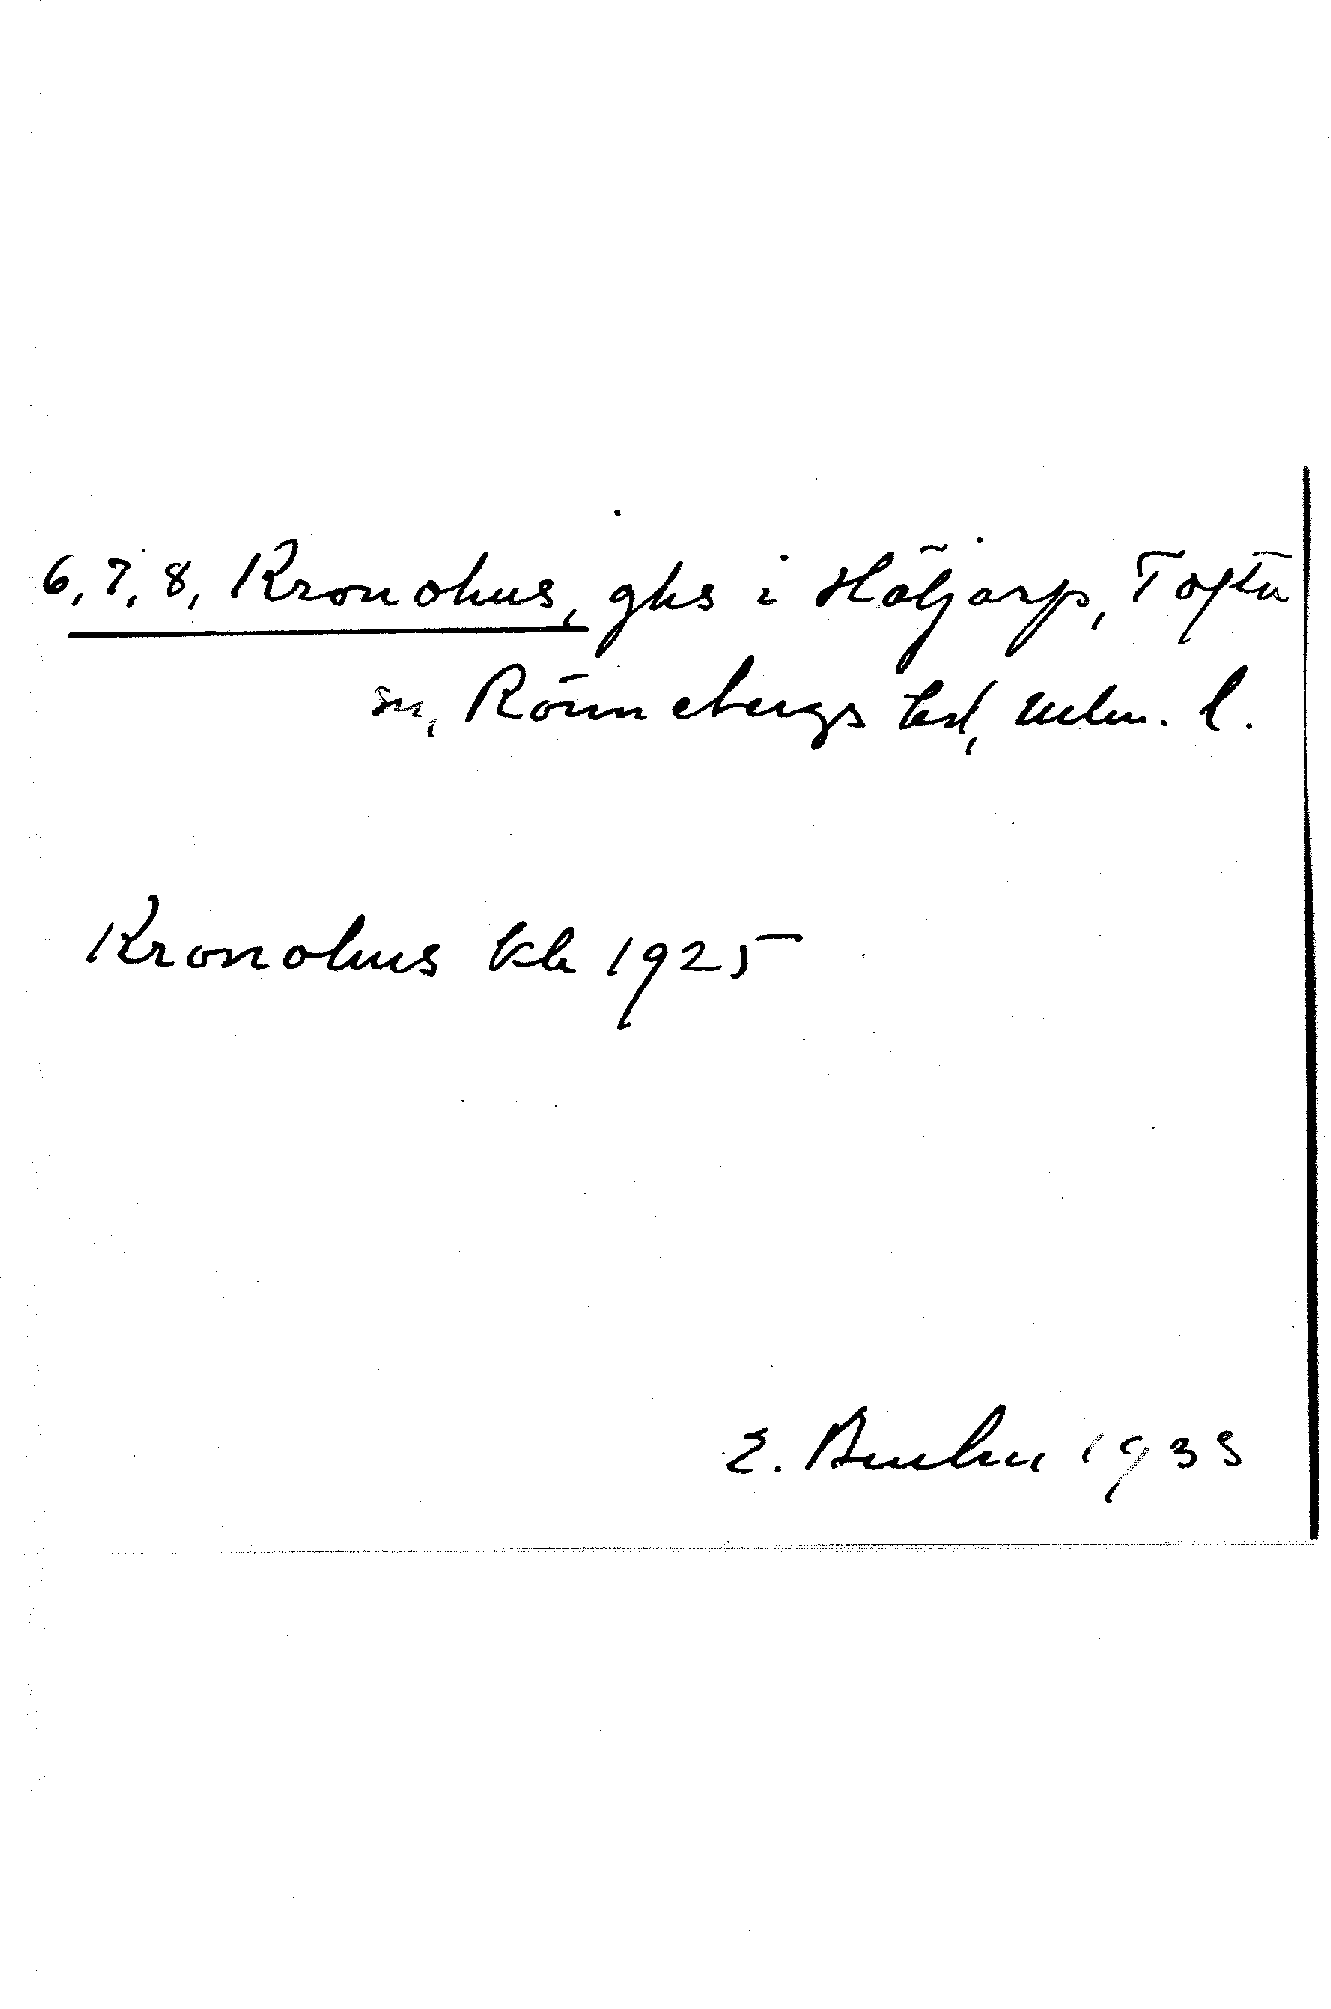 6, 7, 8, Kronohus, ghs i Häljarp, Tofta
sn, Rönnebergs hd, Mlm. l.
Kronohus kb 1925
E. 1933